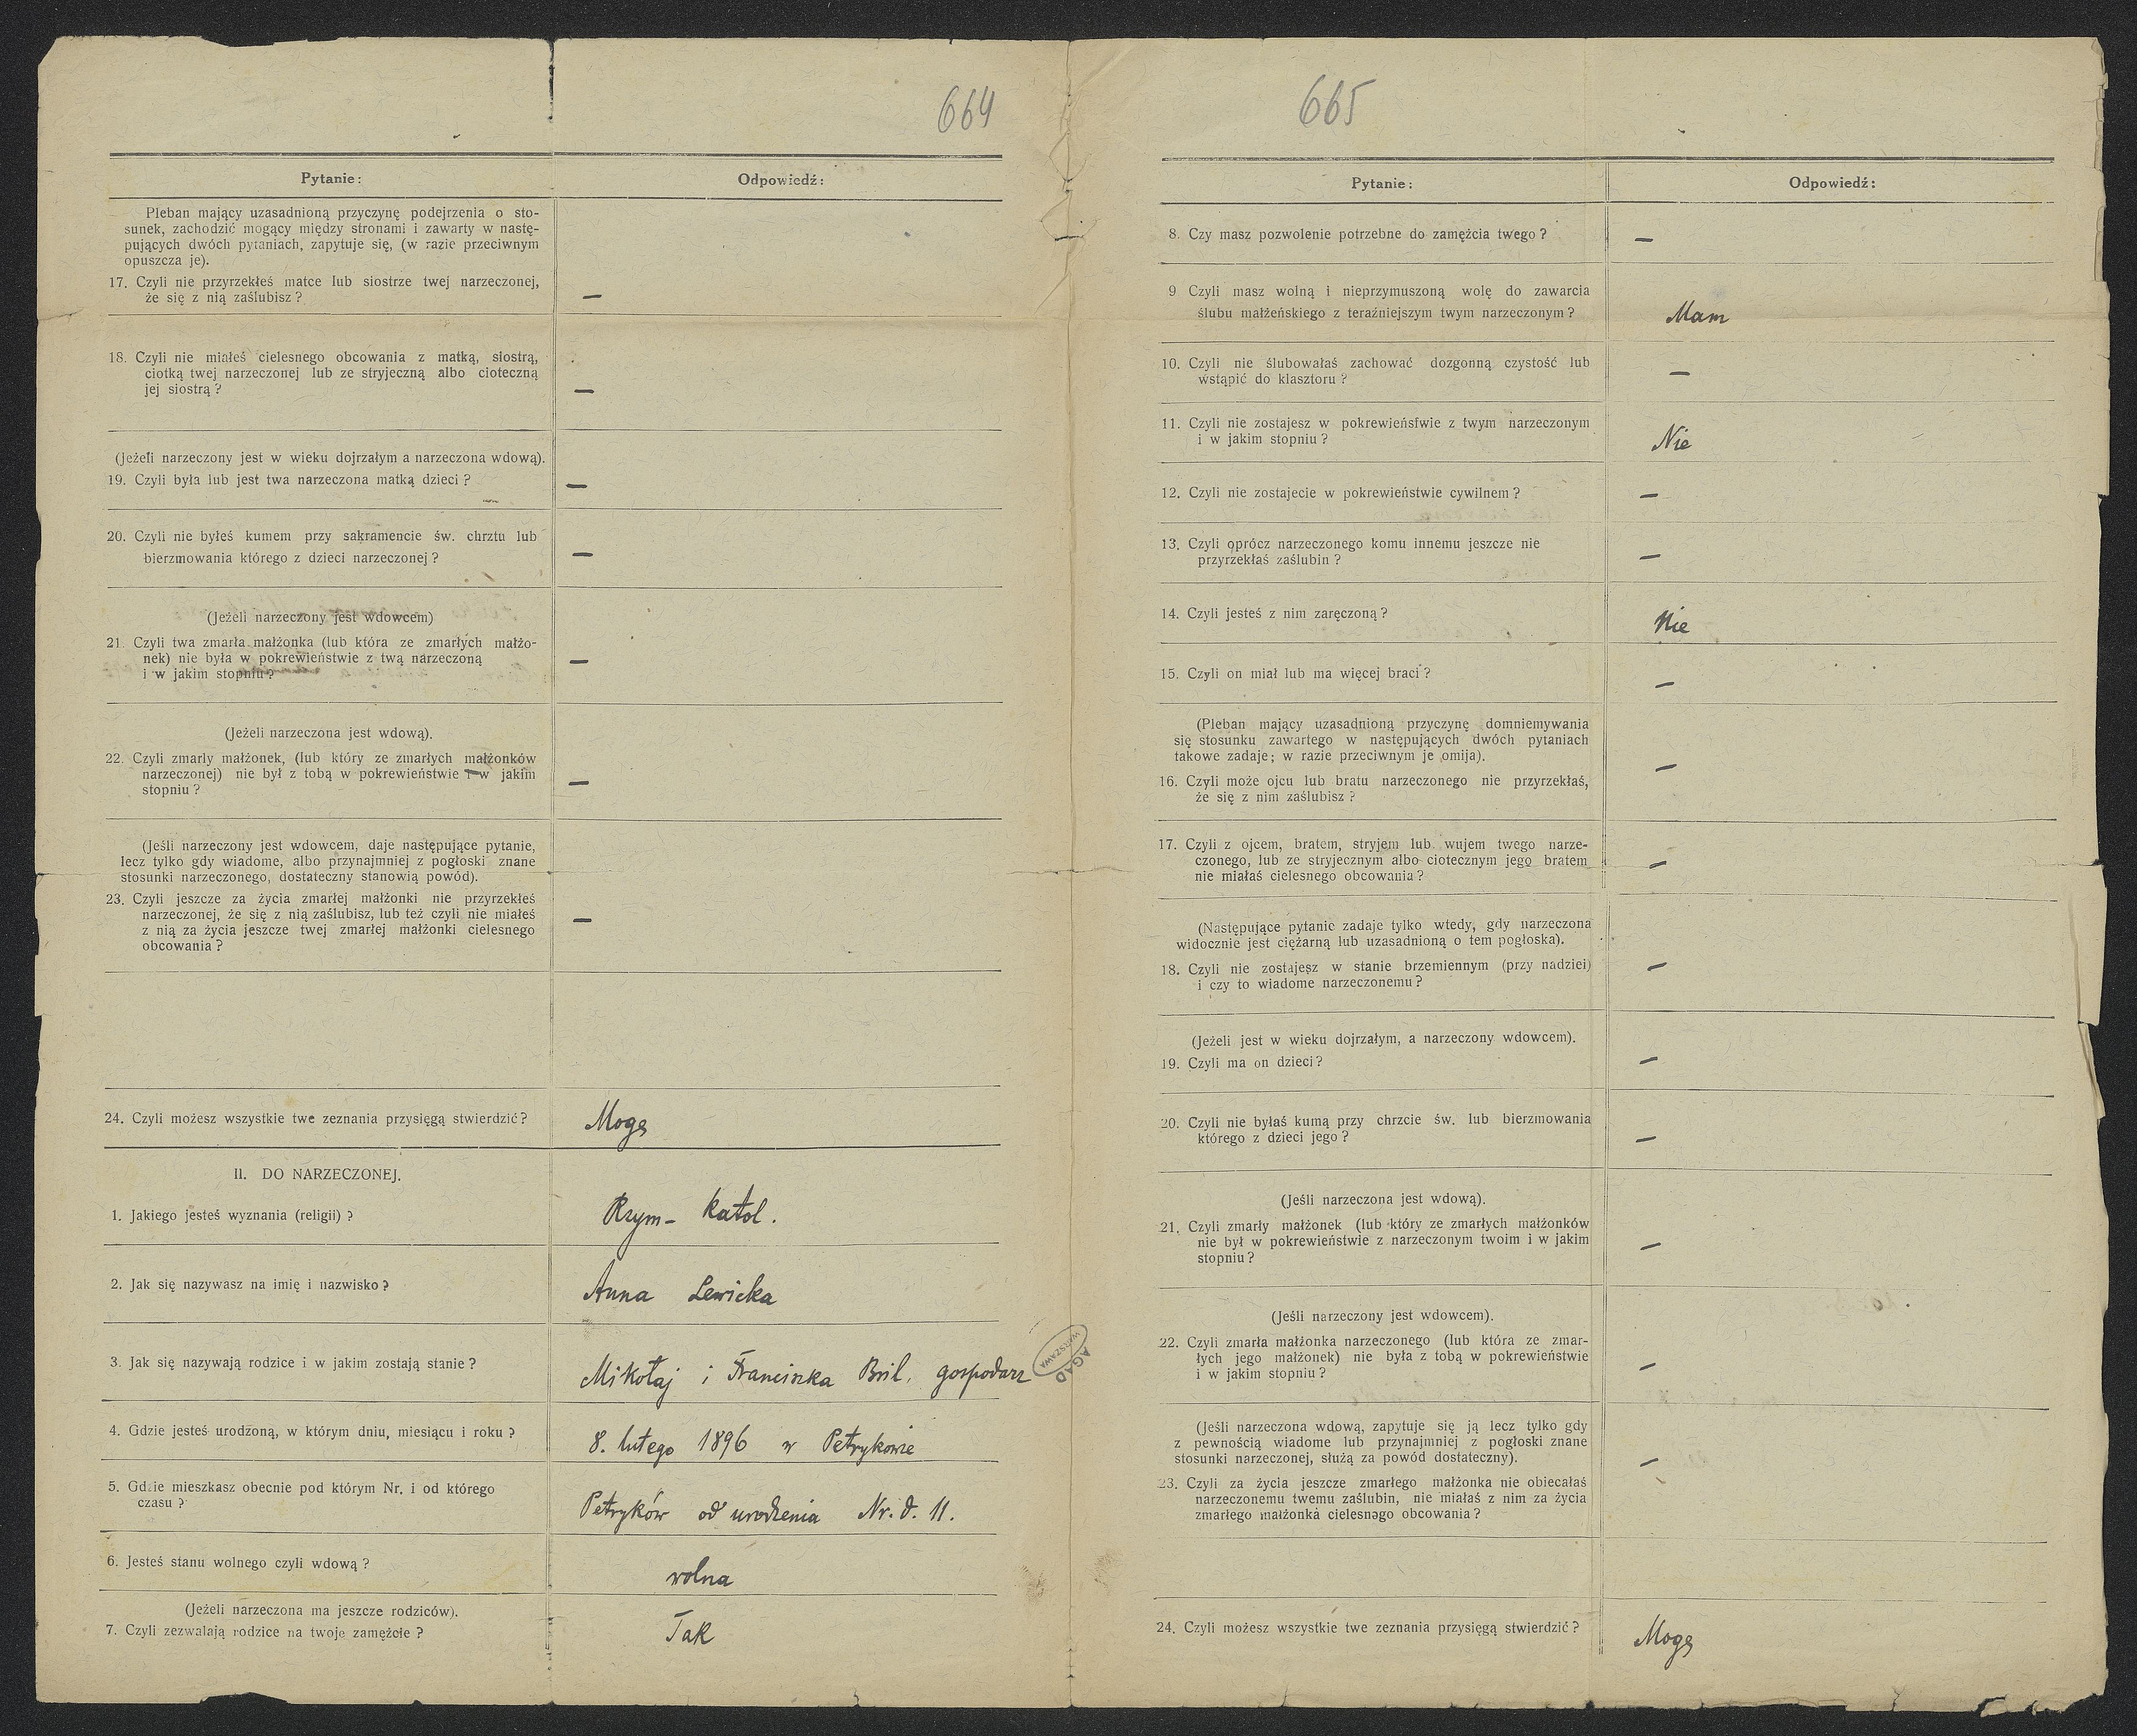 664
Pytanie:
Odpowiedź:
Pleban mający uzasadnioną przyczynę podejrzenia o sto-
sunek, zachodzić mogący między stronami i zawarty w nastę-
pujących dwóch pytaniach, zapytuje się, (w razie przeciwnym
opuszcza je).
17. Czyli nie przyrzekłeś matce lub siostrze twej narzeczonej,
że się z nią zaślubisz?
—
18. Czyli nie miałeś cielesnego obcowania z matką, siostrą,
ciotką twej narzeczonej lub ze stryjeczną albo cioteczną
jej siostrą?
—
(Jeżeli narzeczony jest w wieku dojrzałym a narzeczona wdową).
19. Czyli była lub jest twa narzeczona matką dzieci?
—
20. Czyli nie byłeś kumem przy sakramencie św. chrztu lub
bierzmowania którego z dzieci narzeczonej?
—
(Jeżeli narzeczony jest wdowcem)
21. Czyli twa zmarła małżonka (lub która ze zmarłych małżo-
nek) nie była w pokrewieństwie z twą narzeczoną
i w jakim stopniu?
—
(Jeżeli narzeczona jest wdową).
22. Czyli zmarły małżonek, (lub który ze zmarłych małżonków
narzeczonej) nie był z tobą w pokrewieństwie i w jakim
stopniu?
—
(Jeśli narzeczony jest wdowcem, daje następujące pytanie,
lecz tylko gdy wiadome, albo przynajmniej z pogłoski znane
stosunki narzeczonego, dostateczny stanowią powód).
23. Czyli jeszcze za życia zmarłej małżonki nie przyrzekłeś
narzeczonej, że się z nią zaślubisz, lub też czyli nie miałeś
z nią za życia jeszcze twej zmarłej małżonki cielesnego
obcowania?
—
24. Czyli możesz wszystkie twe zeznania przysięgą stwierdzić?
Mogę
II. DO NARZECZONEJ.
1. Jakiego jesteś wyznania (religii)?
Rzym- Katol.
2. Jak się nazywasz na imię i nazwisko?
Anna Lewicka
3. Jak się nazywają rodzice i w jakim zostają stanie?
Mikołaj i Franciszka Bril, gospodarz
AGAD
WARSZAWA
4. Gdzie jesteś urodzoną, w którym dniu, miesiącu i roku?
8. lutego 1896 w Petrykowie
5. Gdzie mieszkasz obecnie pod którym Nr. i od którego
czasu?
Petryków od urodzenia Nr. d. 11.
6. Jesteś stanu wolnego czyli wdową?
wolna
(Jeżeli narzeczona ma jeszcze rodziców).
7. Czyli zezwalają rodzice na twoje zamęźcie?
Tak
665
Pytanie:
Odpowiedź:
8. Czy masz pozwolenie potrzebne do zamężcia twego?
—
9 Czyli masz wolną i nieprzymuszoną wolę do zawarcia
ślubu małżeńskiego z teraźniejszym twym narzeczonym?
Mam
10. Czyli nie ślubowałaś zachować dozgonną czystość lub
wstąpić do klasztoru?
—
11. Czyli nie zostajesz w pokrewieństwie z twym narzeczonym
i w jakim stopniu?
Nie
12. Czyli nie zostajecie w pokrewieństwie cywilnem?
—
13. Czyli oprócz narzeczonego komu innemu jeszcze nie
przyrzekłaś zaślubin?
—
14. Czyli jesteś z nim zaręczoną?
Nie
15. Czyli on miał lub ma więcej braci?
—
(Pleban mający uzasadnioną przyczynę domniemywania
się stosunku zawartego w następujących dwóch pytaniach
takowe zadaje; w razie przeciwnym je omija).
16. Czyli może ojcu lub bratu narzeczonego nie przyrzekłaś,
że się z nim zaślubisz?
—
17. Czyli z ojcem, bratem, stryjem lub wujem twego narze-
czonego, lub ze stryjecznym albo ciotecznym jego bratem
nie miałaś cielesnego obcowania?
—
(Następujące pytanie zadaje tylko wtedy, gdy narzeczona
widocznie jest ciężarną lub uzasadnioną o tem pogłoska).
18. Czyli nie zostajesz w stanie brzemiennym (przy nadziei)
i czy to wiadome narzeczonemu?
—
(Jeżeli jest w wieku dojrzałym, a narzeczony wdowcem).
19. Czyli ma on dzieci?
—
20. Czyli nie byłaś kumą przy chrzcie św. lub bierzmowania
którego z dzieci jego?
—
(Jeśli narzeczona jest wdową).
21. Czyli zmarły małżonek (lub który ze zmarłych małżonków
nie był w pokrewieństwie z narzeczonym twoim i w jakim
stopniu?
—
(Jeśli narzeczony jest wdowcem).
22. Czyli zmarła małżonka narzeczonego (lub która ze zmar-
łych jego małżonek) nie była z tobą w pokrewieństwie
i w jakim stopniu?
—
(Jeśli narzeczona wdową, zapytuje się ją lecz tylko gdy
z pewnością wiadome lub przynajmniej z pogłoski znane
stosunki narzeczonej, służą za powód dostateczny).
23. Czyli za życia jeszcze zmarłego małżonka nie obiecałaś
narzeczonemu twemu zaślubin, nie miałaś z nim za życia
zmarłego małżonka cielesnego obcowania?
—
24. Czyli możesz wszystkie twe zeznania przysięgą stwierdzić?
Mogę